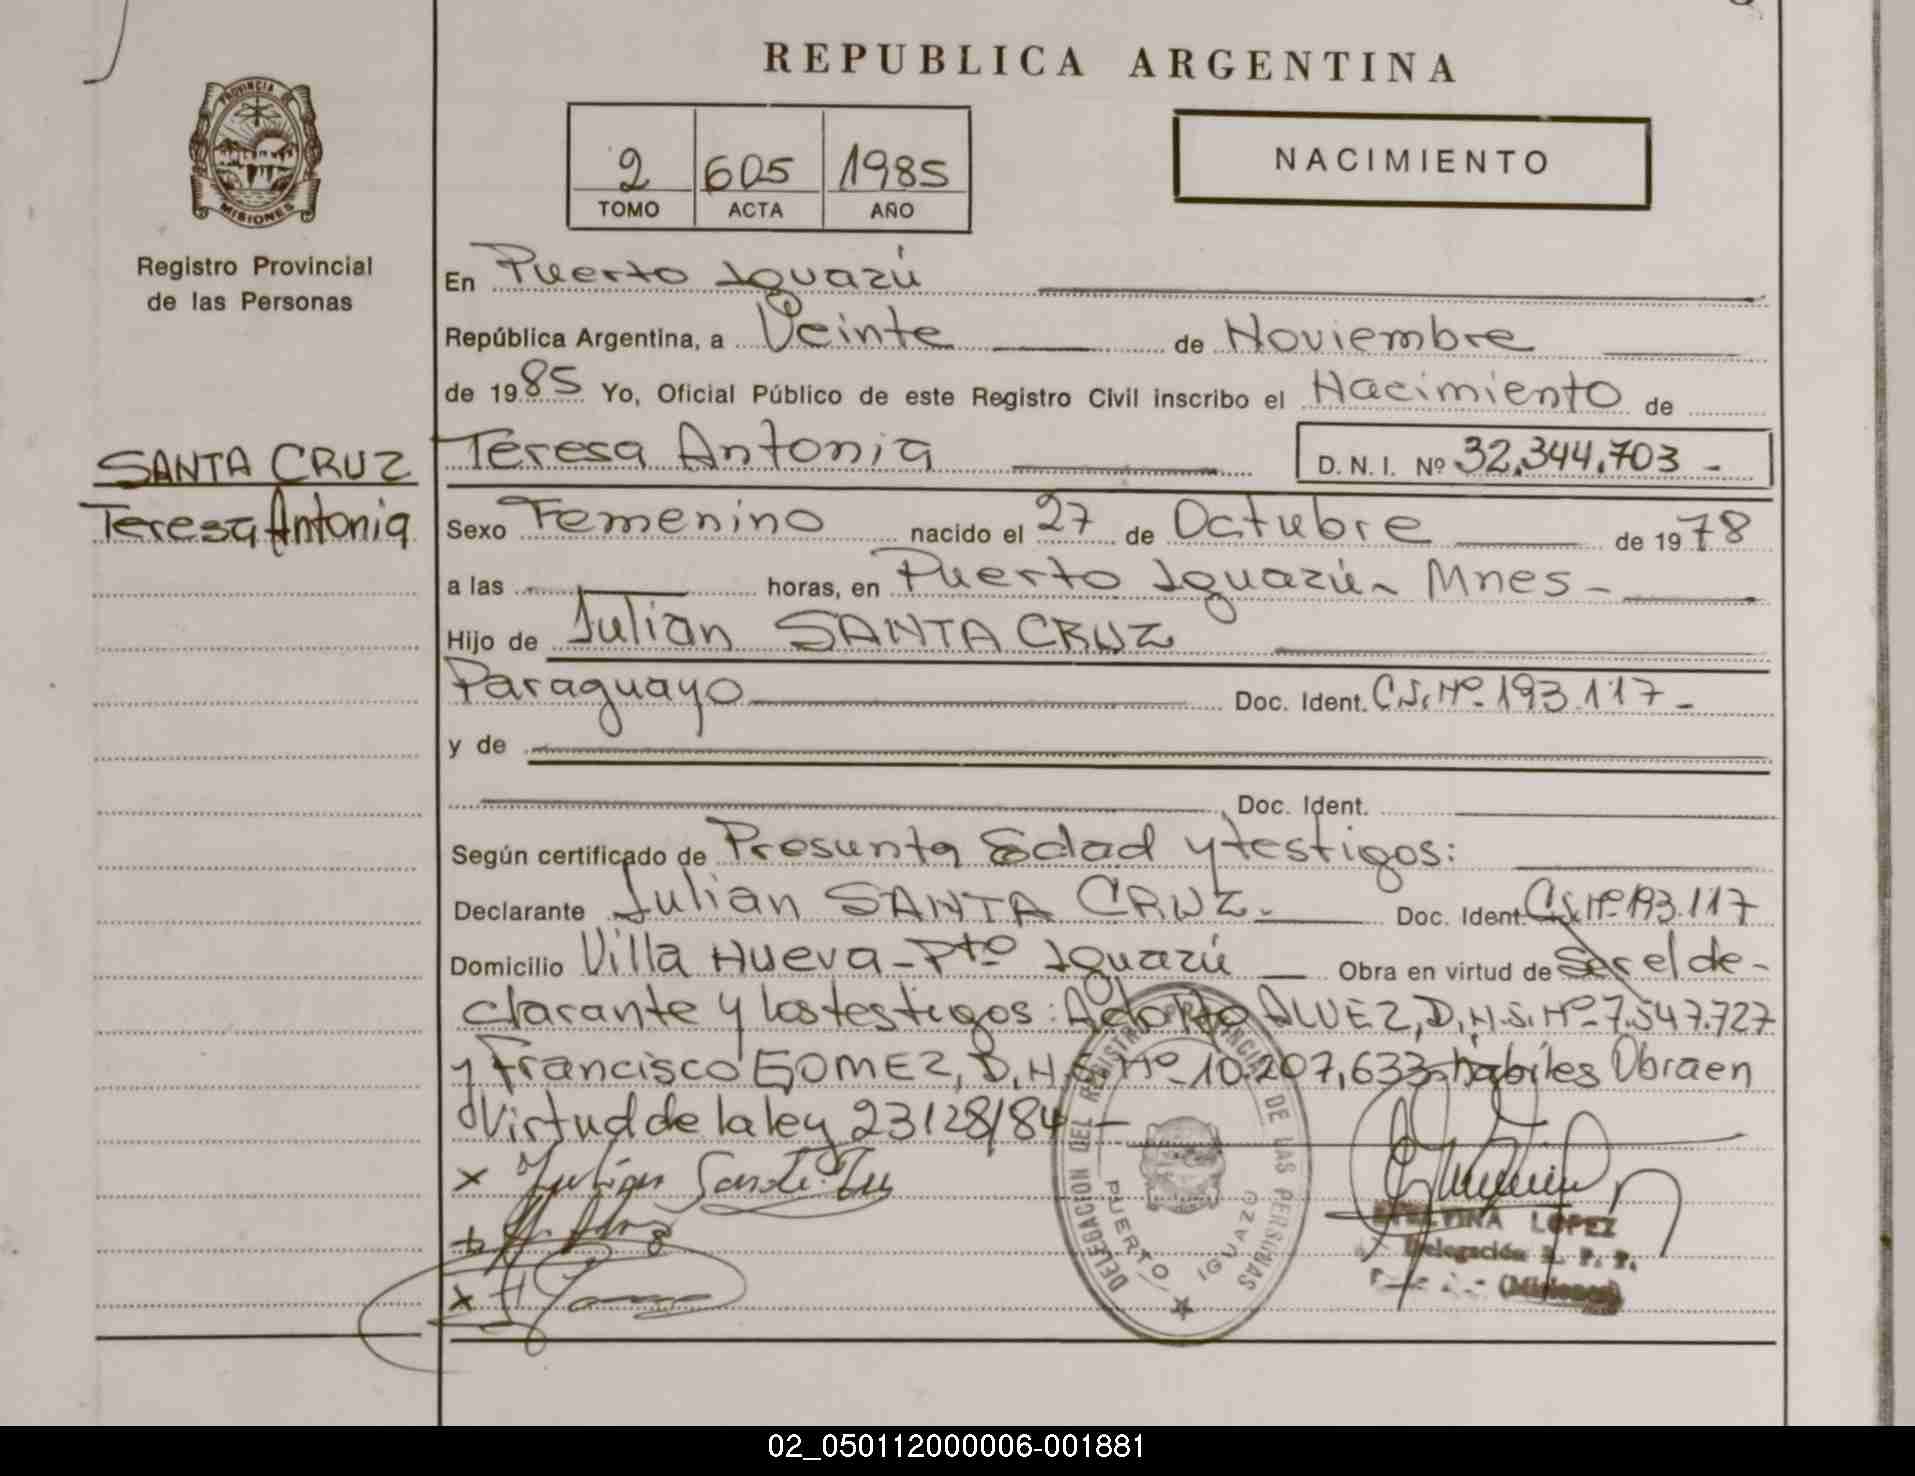 REPUBLICA ARGENTINA
PROVINCIA DE
MISIONES
2 605 1985
TOMO ACTA AÑO
NACIMIENTO
Registro Provincial
de las Personas
En Puerto Iguazú
República Argentina, a Veinte de Noviembre
de 1985 Yo, Oficial Público de este Registro Civil inscribo el Nacimiento de
SANTA CRUZ
Teresa Antonia
Teresa Antonia D. N. I. Nº 32.344.703 -
Sexo Femenino nacido el 27 de Octubre de 1978
a las horas, en Puerto Iguazú - Mnes -
Hijo de Julian SANTA CRUZ
Paraguayo Doc. Ident. C.I. Nº 193.117 -
y de
Doc. Ident.
Según certificado de Presunta Edad y testigos:
Declarante Julian SANTA CRUZ - Doc. Ident. C.I. Nº 193.117
Domicilio Villa Nueva - Pto Iguazú Obra en virtud de Ser el de-
clarante y los testigos: Adolfo ALVEZ, D.N.I. Nº 7.547.727
y Francisco GOMEZ, D.N.I. Nº 10.207,633 habiles Obra en
Virtud de la ley 23128/84 -
x Julian Santa Cruz
DELEGACION DEL REGISTRO PROVINCIAL DE LAS PERSONAS
PUERTO IGUAZU
LOPEZ
Delegación R. P. P.
(Misiones)
02_050112000006-001881